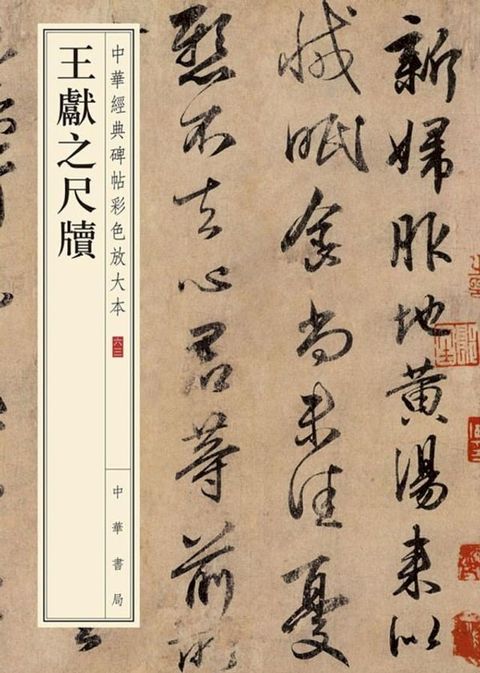 新婦服地黃湯來似
減眠食尚未佳憂
懸不去心君等前所
中華經典碑帖彩色放大本
六三
中華書局
王獻之尺牘